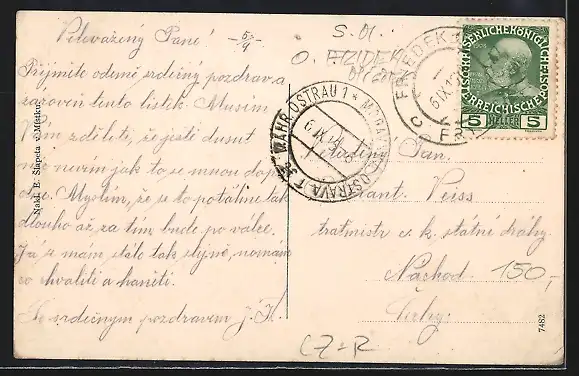 Velevážený Pane! 5/9
Přijměte ode mne srdečný pozdrav a
zároveň tento lístek. Musím
Vám zděleti, že ještě dosut
nic nevím jak to se mnou dopa
dne. Myslím, že se to potáhne tak
dlouho až za tím bude po válce.
Já se mám stále tak stejně, nemám
co chváliti a haněti.
Se srdečným pozdravem J. K.
Nakl. E. Šlapeta, Místku.
S. 01.
O. FRIDEK
FRIEDEK
6 IX
KAISERLICHE KÖNIGLICHE
ÖSTERREICHISCHE POST
5 HELLER 5
MÄHR. OSTRAU 1 * MORAVSKÁ OSTRAVA 1 *
6 IX
Pan
Ant. Veiss
c. k. státní dráhy
Náchod 150,-
Čechy
7482
CZ-R